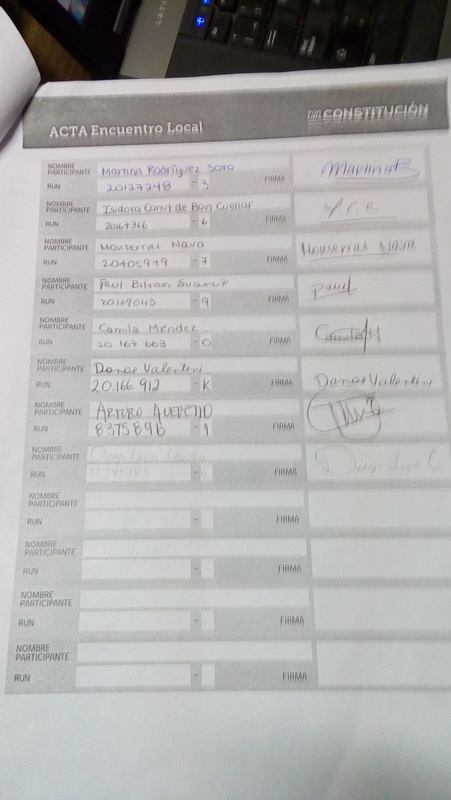 ACTA Encuentro Local
CONSTITUCIÓN
NOMBRE PARTICIPANTE Martina Rodríguez Soto
RUN 20127248 - 3 FIRMA
NOMBRE PARTICIPANTE Isidora Canut de Bon Cuellar
RUN 20167366 - 6 FIRMA Y.C.R
NOMBRE PARTICIPANTE Monserrat Nava
RUN 20405949 - 7 FIRMA Monserrat Nava
NOMBRE PARTICIPANTE Paul Bitran
RUN 20169043 - 9 FIRMA Paul
NOMBRE PARTICIPANTE Camila Méndez
RUN 20 167 663 - 0 FIRMA
NOMBRE PARTICIPANTE Danae Valentini
RUN 20.166.912 - K FIRMA Danae Valentini
NOMBRE PARTICIPANTE Arturo
RUN 8375896 - 1 FIRMA
NOMBRE PARTICIPANTE Diego
RUN - FIRMA Diego
NOMBRE PARTICIPANTE
RUN - FIRMA
NOMBRE PARTICIPANTE
RUN - FIRMA
NOMBRE PARTICIPANTE
RUN - FIRMA
NOMBRE PARTICIPANTE
RUN - FIRMA